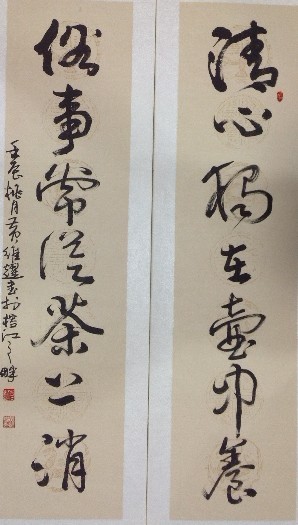 清心獨在壺中養
俗事常從茶上消
壬辰桃月黄維書於江之畔